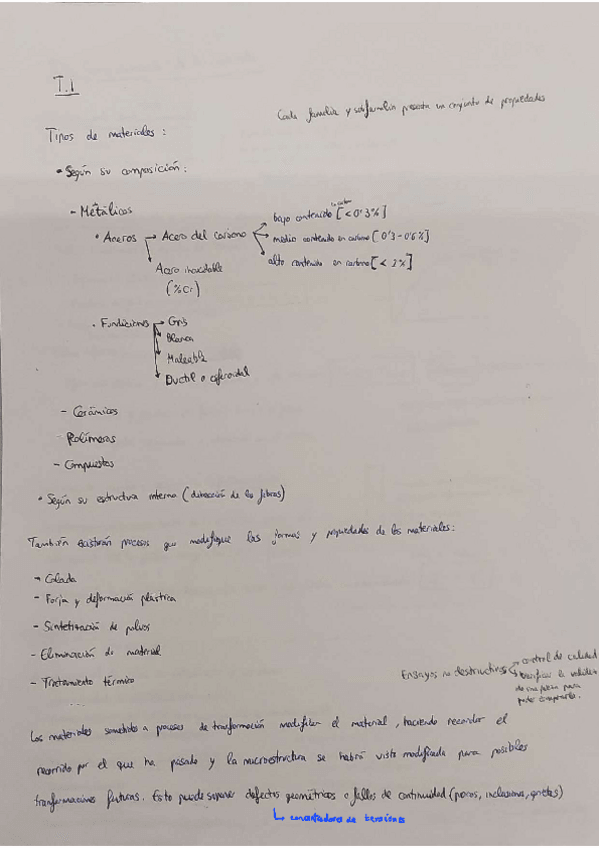 T.1
Cada familia y subfamilia presenta un conjunto de propiedades
Tipos de materiales:
• Según su composición:
- Metálicos
• Aceros → Acero del carbono
bajo contenido [<0'3%]
medio contenido en carbono [0'3-0'6%]
alto contenido en carbono [< 2%]
Acero inoxidable
(%Cr)
• Fundiciones → Gris
Blanca
Maleable
Ductil o esferoidal
- Cerámicos
- Polímeros
- Compuestos
• Según su estructura interna (dirección de las fibras)
También existirán procesos que modifiquen las formas y propiedades de los materiales:
→ Colada
- Forja y deformación plástica
- Sinterización de polvos
- Eliminación de material
- Tratamiento térmico
Ensayos no destructivos
control de calidad
verificar la
de una pieza para
poder comprarla.
Los materiales sometidos a procesos de transformación modifican el material, haciendo recordar el
recorrido por el que ha pasado y la microestructura se habrá visto modificada para posibles
transformaciones futuras. Esto puede suponer defectos geométricos o fallos de continuidad (poros, inclusiones, grietas)
↳ concentradores de tensiones